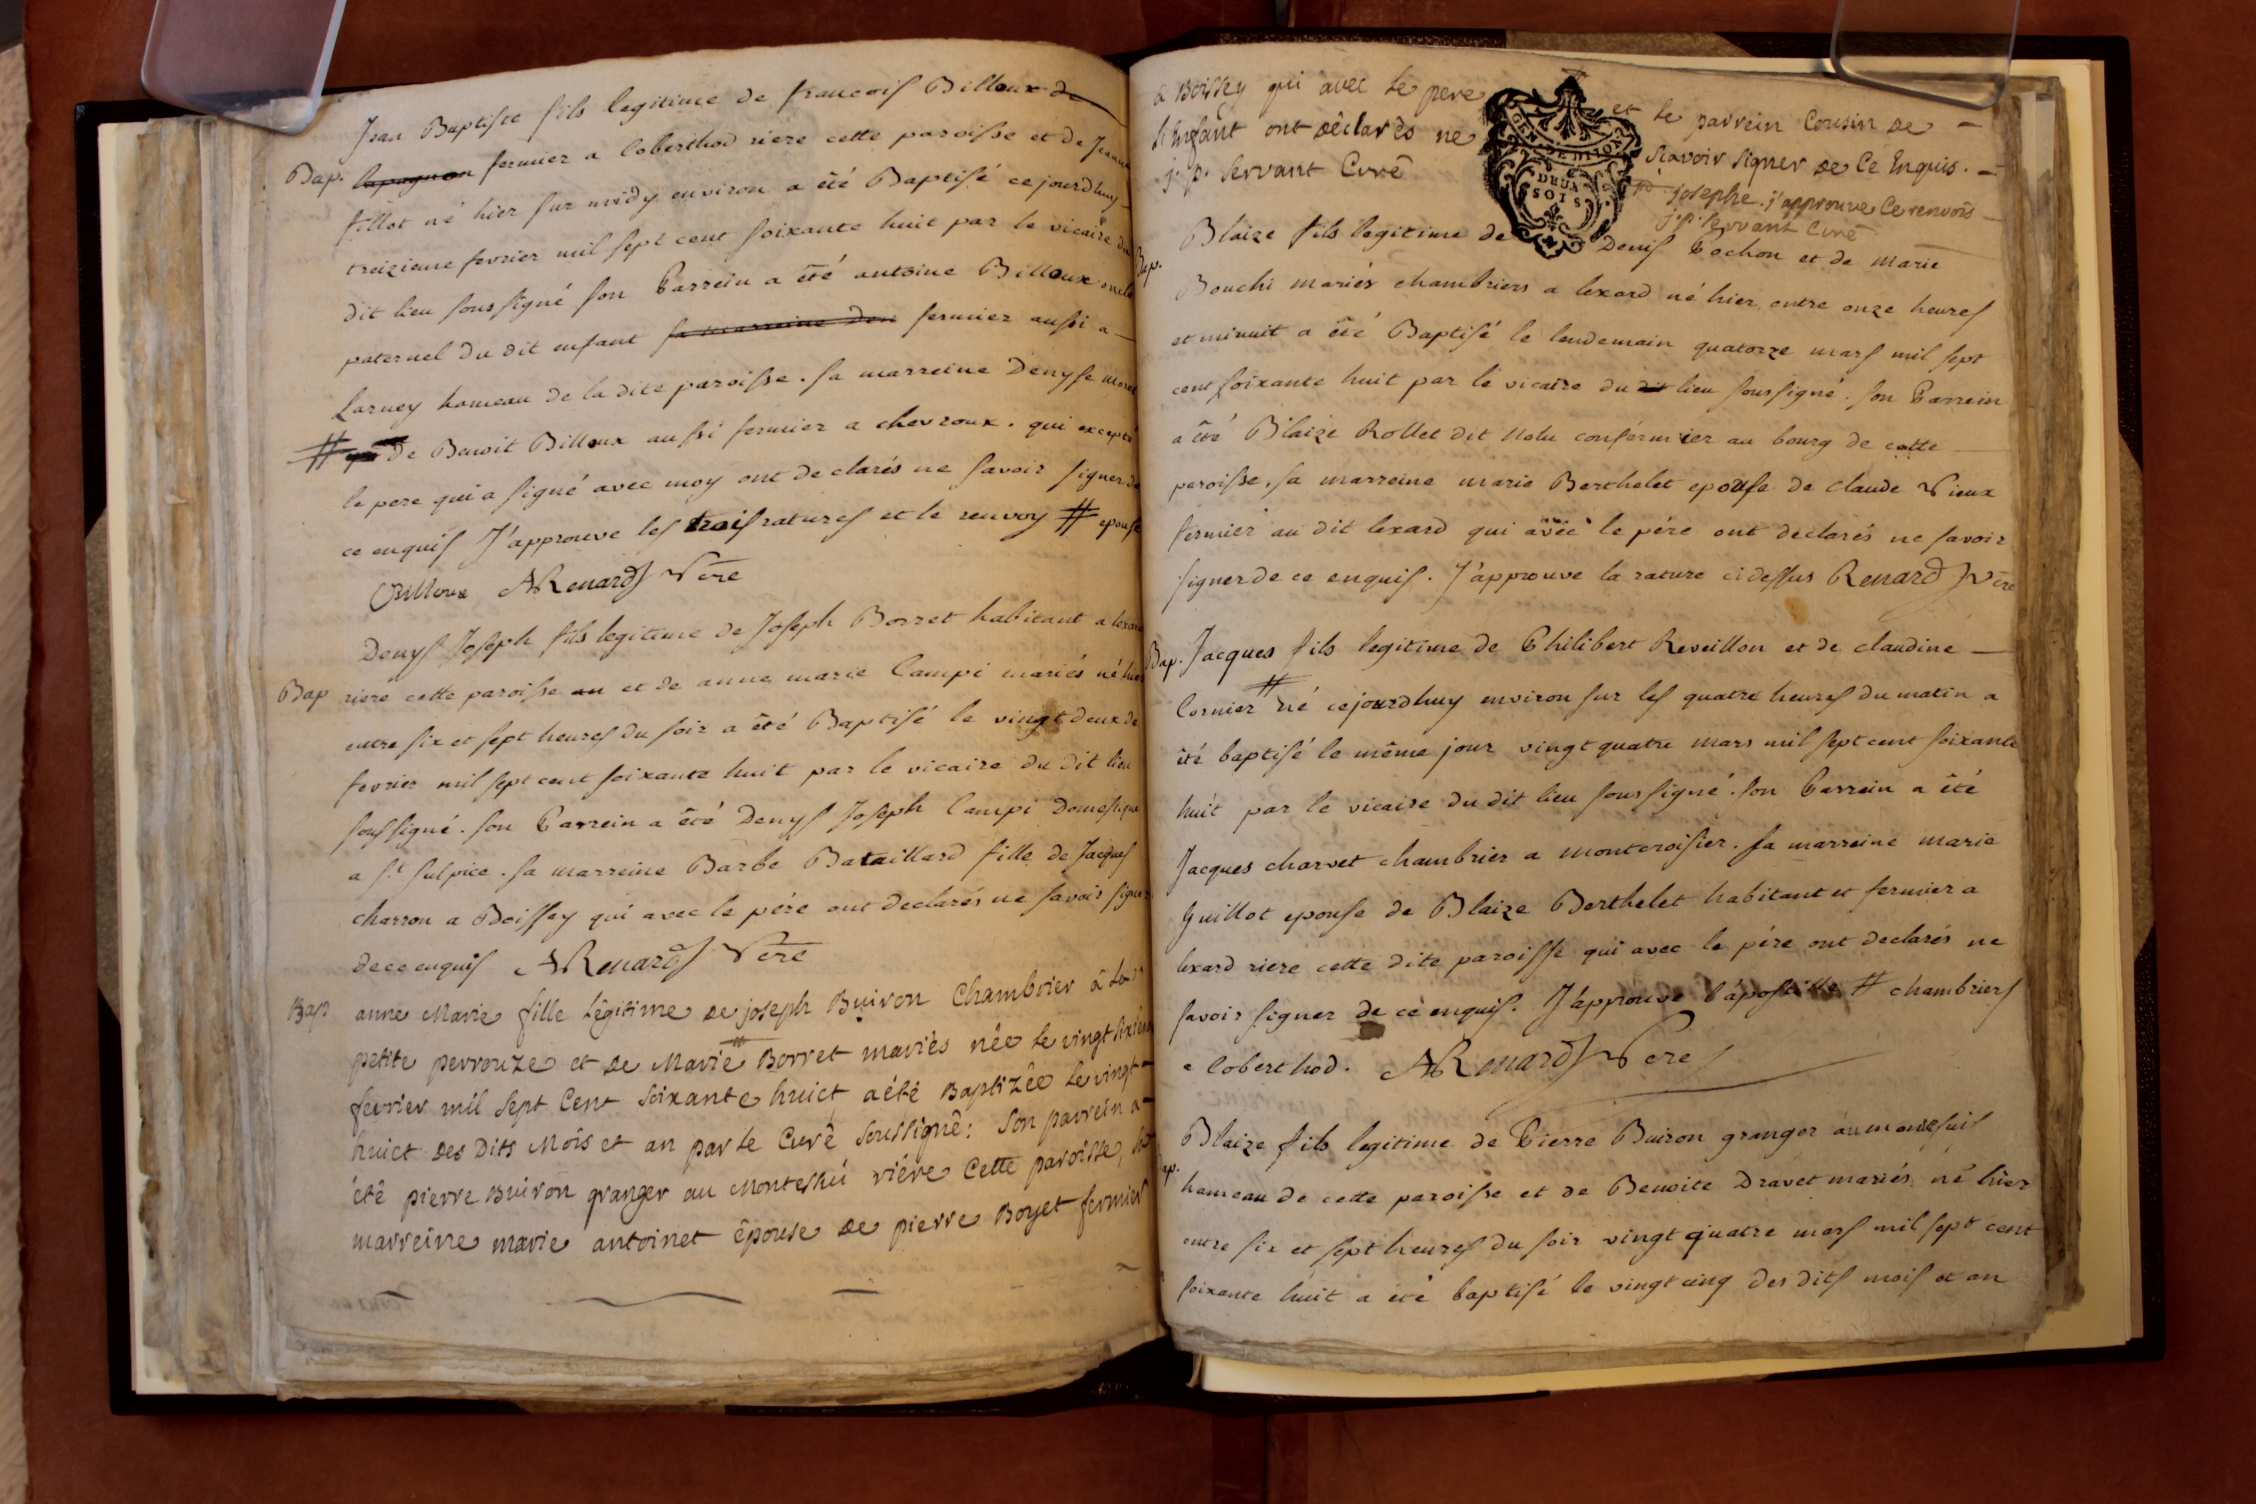 Jean Baptiste fils legitime de francois Billoux de
Bap. lapagnon fermier a loberthod riere cette paroisse et de Jeanne
fillot né hier sur midy environ a été Baptisé ce jourdhuy
treizieme fevrier mil sept cent soixante huit par le vicaire du
dit lieu soussigné son Parrein a été antoine Billoux oncle
paternel du dit enfant sa marreine den fermier aussi a
Larney hameau de la dite paroisse. sa marreine Denyse moret
# de Benoit Billoux aussi fermier a chevroux. qui excepté
le pere qui a signé avec moy ont declarés ne savoir signer de
ce enquis J'approuve les trois ratures et le renvoy # epouse
Billoux ARenard Vere
Denys Joseph fils legitime de Joseph Borret habitant a lexard
Bap riere cette paroisse et de anne marie Campi mariés né hier
entre six et sept heures du soir a été Baptisé le vingt deux de
fevrier mil sept cent soixante huit par le vicaire du dit lieu
soussigné. son Parrein a été Denys Joseph Campi Domestique
a St sulpice. sa marreine Barbe Bataillard fille de Jacques
charron a Boissey qui avec le pére ont declarés ne savoir signer
de ce enquis ARenard Vere
Bap anne Marie fille legitime de joseph Buiron Chambrier à la
petite perrouze et de Marie # Borret mariés née le vingt sixieme
fevrier mil sept Cent soixante huict a été Baptizée le vingt
huict des dits Mois et an par le Curé soussigné: son parrein a
été pierre Buiron granger au Monteshui riére Cette paroisse, sa
marreine marie antoinet épouse de pierre Boyet fermier
a Boissey qui avec le pere et le parrein Cousin de
l'Enfant ont déclarés ne sçavoir signer de Ce Enquis.
j. p. servant Curé # josephe. j'approuve Ce renvois
j. p. servant Curé
GEN. DE DIJON
DEUX
SOLS
Bap. Blaize fils legitime de Denis Pochon et de marie
Bouchi mariés chambriers a lexard né hier entre onze heures
et minuit a été Baptisé le lendemain quatorze mars mil sept
cent soixante huit par le vicaire du dit lieu soussigné. son Parrein
a été Blaize Rollet dit Nolu confermier au bourg de cette
paroisse, sa marreine marie Berthelet epouse de claude Vieux
fermier au dit lexard qui avec le pére ont declarés ne savoir
signer de ce enquis. J'approuve la rature cidessus Renard Vere
Bap. Jacques fils legitime de Philibert Reveillon et de claudine
Cornier # né cejourdhuy environ sur les quatre heures du matin a
été baptisé le même jour vingt quatre mars mil sept cent soixante
huit par le vicaire du dit lieu soussigné. son Parrein a été
Jacques charvet chambrier a montcroisier. sa marreine marie
Guillot epouse de Blaize Berthelet habitant et fermier a
lexard riere cette dite paroisse qui avec le pére ont declarés ne
savoir signer de ce enquis. J'approuve l'apostille # chambriers
a loberthod. ARenard Vere
Blaize fils legitime de Pierre Buiron granger au montesuit
ap. hameau de cette paroisse et de Benoite Dravet mariés né hier
entre six et sept heures du soir vingt quatre mars mil sept cent
soixante huit a été baptisé le vingt cinq des dits mois et an